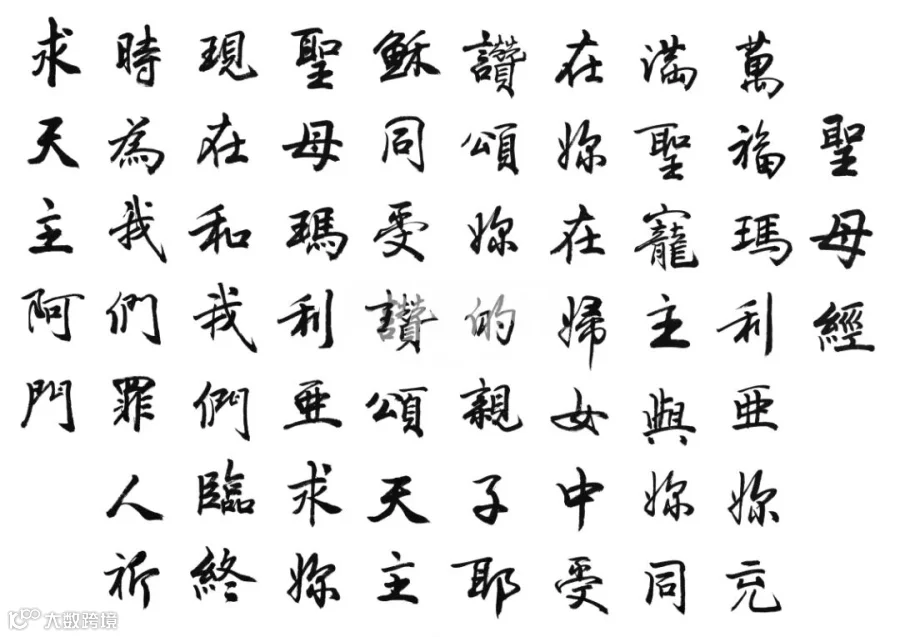 聖母經
萬福瑪利亞妳充
滿聖寵主與妳同
在妳在婦女中受
讚頌妳的親子耶
穌同受讚頌天主
聖母瑪利亞求妳
現在和我們臨終
時為我們罪人祈
求天主阿門
大数跨境